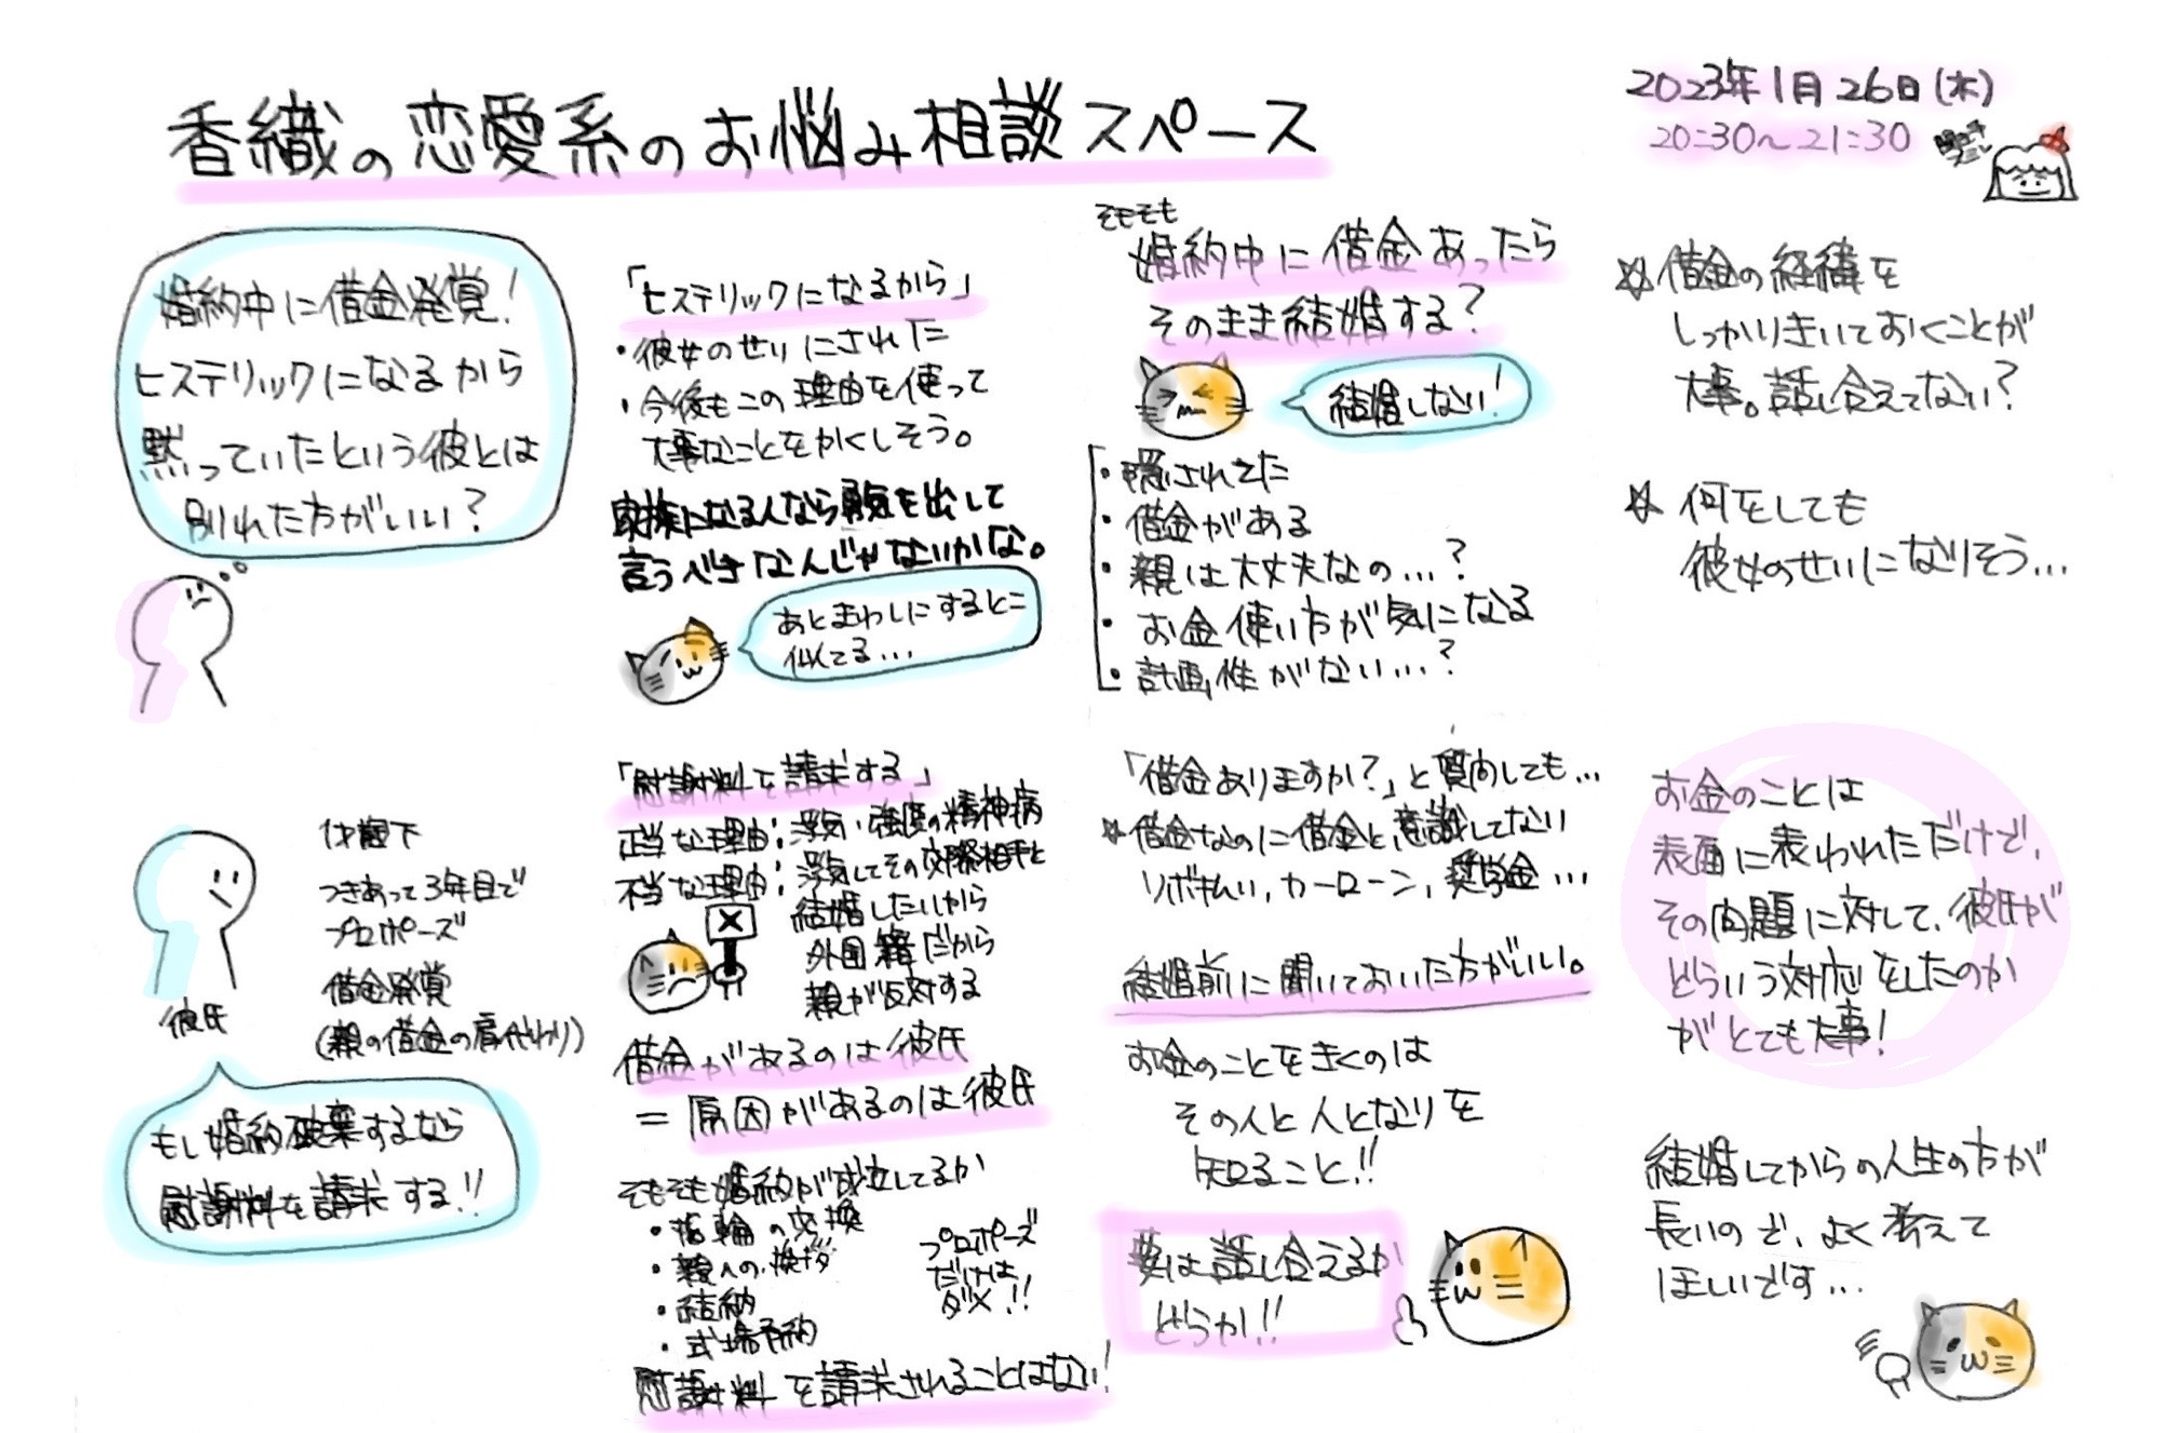 香織の恋愛系のお悩み相談スペース
2023年1月26日(木)
20:30〜21:30
婚約中に借金発覚!
ヒステリックになるから
黙っていたという彼とは
別れた方がいい?
「ヒステリックになるから」
・彼女のせいにされた
・今後もこの理由を使って
大事なことをかくしそう。
家族になる人なら勇気を出して
言うべきなんじゃないかな。
あとまわしにするとこ
似てる…
そもそも
婚約中に借金あったら
そのまま結婚する?
結婚しない!
・隠されてた
・借金がある
・親は大丈夫なの…?
・お金使い方が気になる
・計画性がない…?
☆借金の経緯を
しっかりきいておくことが
大事。話し合えてない?
☆何をしても
彼女のせいになりそう…
彼氏
付き合って3年目で
プロポーズ
借金発覚
(親の借金の肩代わり)
もし婚約破棄するなら
慰謝料を請求する!!
「慰謝料を請求する」
正当な理由:浮気・強度の精神病
不当な理由:浮気してその交際相手と
結婚したいから
外国籍だから
親が反対する
借金があるのは彼氏
=原因があるのは彼氏
そもそも婚約が成立してるか
・指輪の交換
・親への挨拶
・結納
・式場予約
プロポーズ
だけは
ダメ!!
慰謝料を請求されることはない!
「借金ありますか?」と質問しても…
☆借金なのに借金と意識してない
リボ払い,カーローン,奨学金…
結婚前に聞いておいた方がいい。
お金のことをきくのは
その人と人となりを
知ること!!
要は話し合えるか
どうか!!
お金のことは
表面に表われただけで、
その問題に対して、彼氏が
どういう対応をしたのか
がとても大事!
結婚してからの人生の方が
長いので、よく考えて
ほしいです…